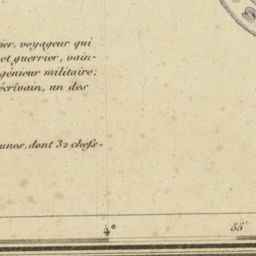 ier, voyageur qui
et guerrier, vain-
génieur militaire;
écrivain, un des
unes, dont 32 chefs-
4° 55'